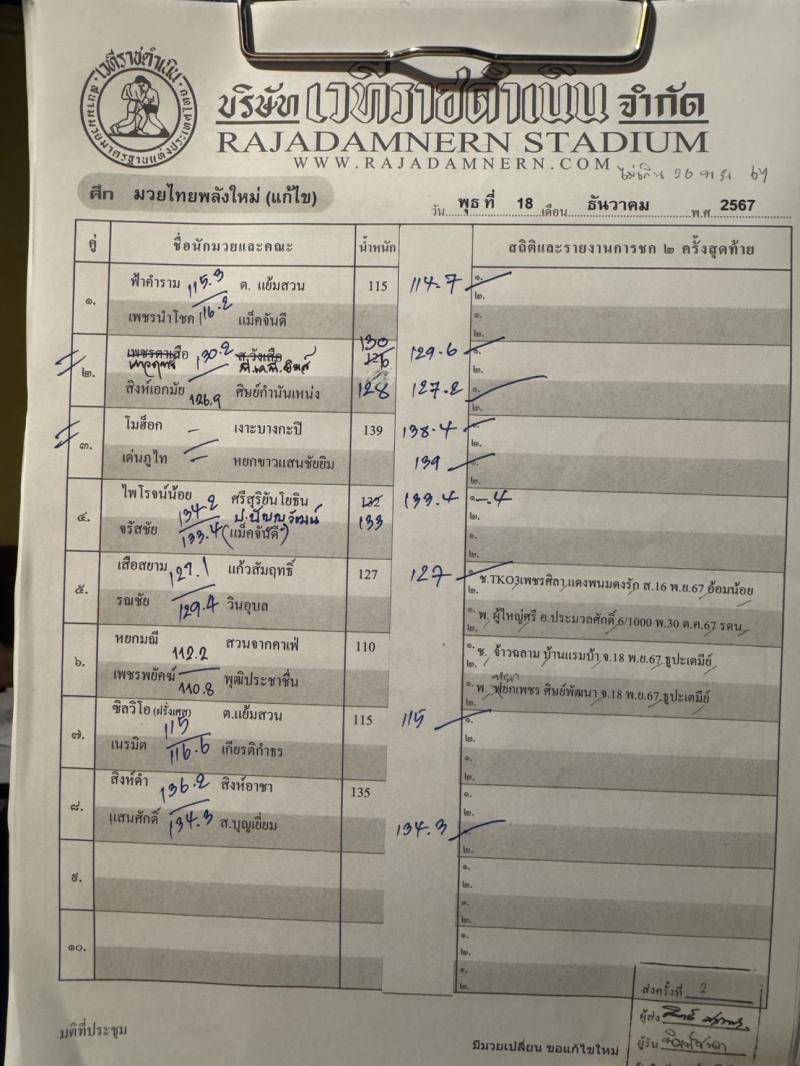 เวทีราชดำเนิน
บริษัท เวทีราชดำเนิน จำกัด
RAJADAMNERN STADIUM
WWW.RAJADAMNERN.COM
ไม่เกิน 26
ศึก มวยไทยพลังใหม่ (แก้ไข)
วัน พุธ ที่ 18 เดือน ธันวาคม พ.ศ 2567
คู่ ชื่อนักมวยและคณะ น้ำหนัก สถิติและรายงานการชก ๒ ครั้งสุดท้าย
๑. ฟ้าคำราม 115.3 ต. แย้มสวน 115 114.7 ๑.
๒.
เพชรนำโชค 116.2 แม็คจันดี ๑.
๒.
130
๒. เพชรดาเสือ 130.2 ส.วังเสือ 126 129.6 ๑.
๒.
สิงห์เอกมัย 126.9 ศิษย์กำนันเหน่ง 128 127.2 ๑.
๒.
๓. โมฮ็อก – เงาะบางกะปิ 139 138.4 ๑.
๒.
เด่นภูไท – หยกขาวแสนชัยยิม 139 ๑.
๒.
๔. ไพโรจน์น้อย 134.2 ศรีสุริยันโยธิน 132 133.4 ๑. –.4
๒.
ป.ปัญญวัฒน์
จรัสชัย 133.4 (แม็คจันดี) 133 ๑.
๒.
๕. เสือสยาม 127.1 แก้วสัมฤทธิ์ 127 127 ๑.
๒. ช.TKO3เพชรศิลา แดงพนมดงรัก ส.16 พ.ย.67 อ้อมน้อย
รณชัย 129.4 วินอุบล ๑.
๒. พ. ผู้ใหญ่ศรี อ.ประมวลศักดิ์ 6/1000 พ.30 ต.ค.67 รดน.
๖. หยกมณี 112.2 สวนจากคาเฟ่ 110 ๑. ช. จ้าวฉลาม บ้านแรมบ้า จ.18 พ.ย.67 ธูปะเตมีย์
๒.
เพชรพยัคฆ์ 110.8 พุฒิประชาชื่น ๑. พ. ฟูยกเพชร ศิษย์พัฒนา จ.18 พ.ย.67 ธูปะเตมีย์
๒.
๗. ซิลวิโอ (ฝรั่งเศส) 115 ต.แย้มสวน 115 115 ๑.
๒.
เนรมิต 116.6 เกียรติกำธร ๑.
๒.
๘. สิงห์ดำ 136.2 สิงห์อาชา 135 ๑.
๒.
แสนศักดิ์ 134.3 ส.บุญเยี่ยม 134.3 ๑.
๒.
๙. ๑.
๒.
๑.
๒.
๑๐. ๑.
๒.
๑.
๒.
ส่งครั้งที่ 2
ผู้ส่ง
ผู้รับ
มติที่ประชุม
มีมวยเปลี่ยน ขอแก้ไขใหม่